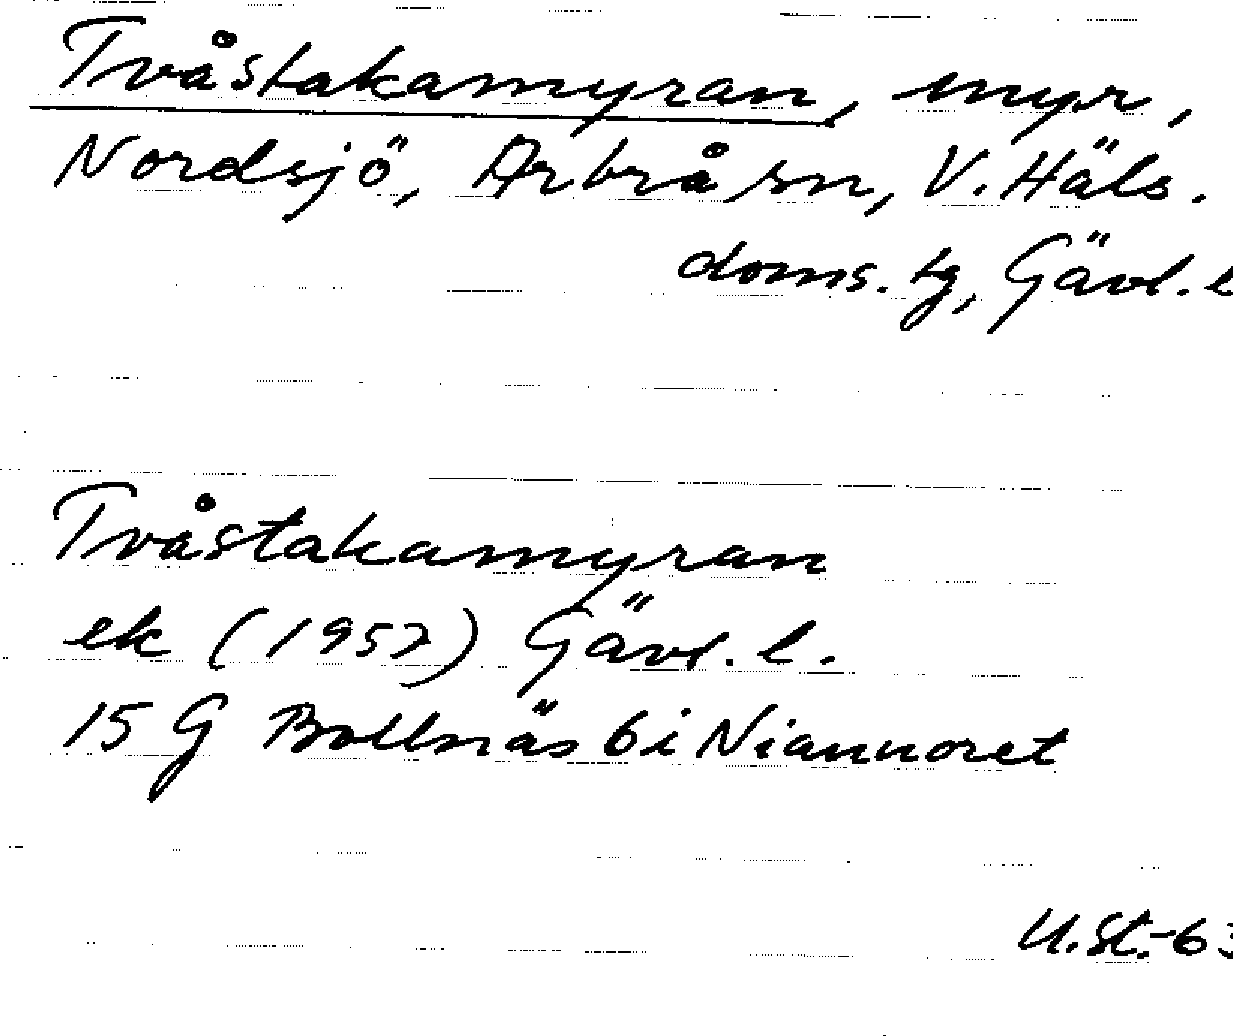 Tvåstakamyran, myr,
Nordsjö, Arbrå sn, V. Häls.
doms. tg, Gävl. l
Tvåstakamyran
ek (1957) Gävl. l.
15 G Bollnäs 6 i Niannoret
U.St.-63